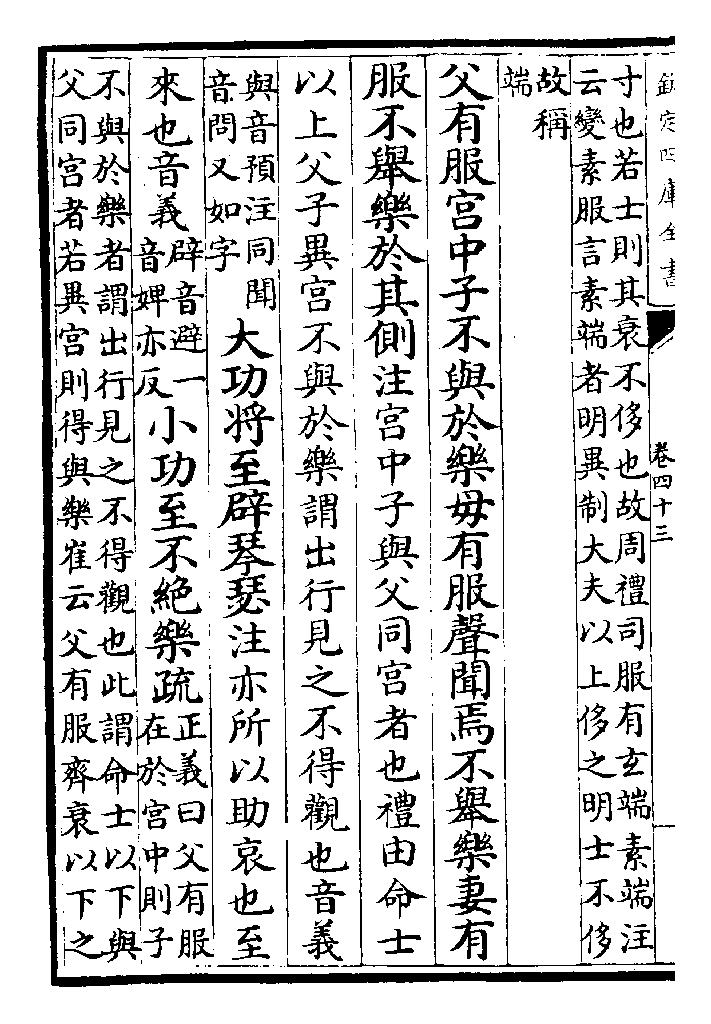 欽定四庫全書
卷四十三
寸也若士則其衰不侈也故周禮司服有玄端素端注
云變素服言素端者明異制大夫以上侈之明士不侈
故稱
端
父有服宫中子不與於樂毋有服聲聞焉不舉樂妻有
服不舉樂於其側注宫中子與父同宫者也禮由命士
以上父子異宫不與於樂謂出行見之不得觀也音義
與音預注同聞
音問又如字
大功将至辟琴瑟注亦所以助哀也至
來也音義
辟音避一
音婢亦反
小功至不絶樂疏
正義曰父有服
在於宫中則子
不與於樂者謂出行見之不得觀也此謂命士以下與
父同宫者若異宫則得與樂崔云父有服齊衰以下之